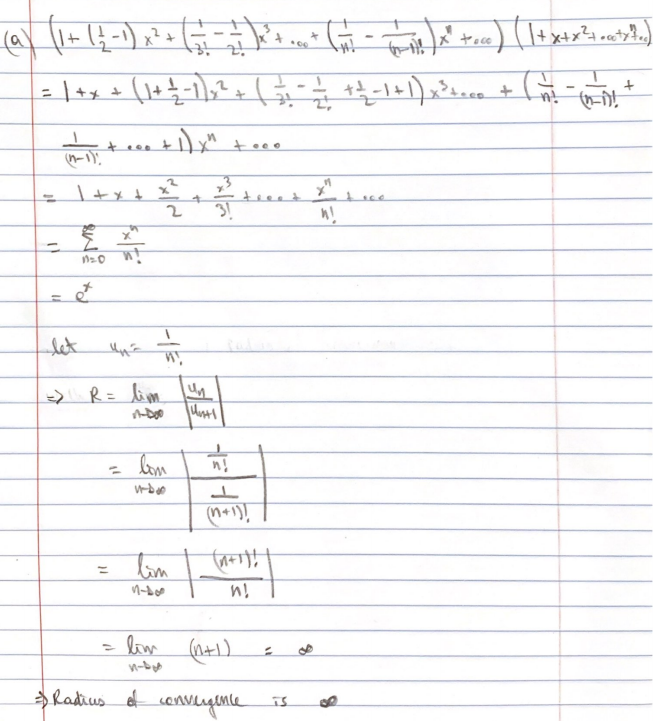 (a) (1 + (1/2 - 1) x² + (1/3! - 1/2!) x³ + ... + (1/n! - 1/(n-1)!) xⁿ + ...) (1 + x + x² + ... + xⁿ + ...)
= 1 + x + (1 + 1/2 - 1) x² + (1/3! - 1/2! + 1/2 - 1 + 1) x³ + ... + (1/n! - 1/(n-1)! +
1/(n-1)! + ... + 1) xⁿ + ...
= 1 + x + x²/2 + x³/3! + ... + xⁿ/n! + ...
= ∑_{n=0}^{∞} xⁿ/n!
= eˣ
let uₙ = 1/n!
⇒ R = lim_{n→∞} |uₙ/uₙ₊₁|
= lim_{n→∞} |(1/n!)/(1/(n+1)!)|
= lim_{n→∞} |(n+1)!/n!|
= lim_{n→∞} (n+1) = ∞
⇒ Radius of convergence is ∞